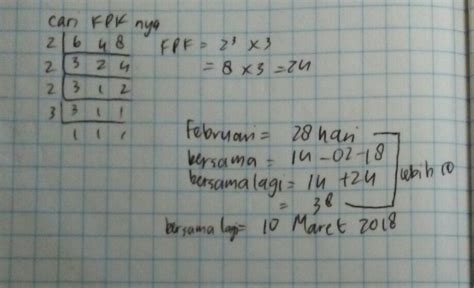 cari KPK nya
2 6 4 8
2 3 2 4
2 3 1 2
3 3 1 1
1 1 1
KPK = 2³ x 3
= 8 x 3 = 24
Februari = 28 hari
bersama = 14 - 02 - 18
bersama lagi = 14 + 24
= 38
lebih 10
bersama lagi = 10 Maret 2018